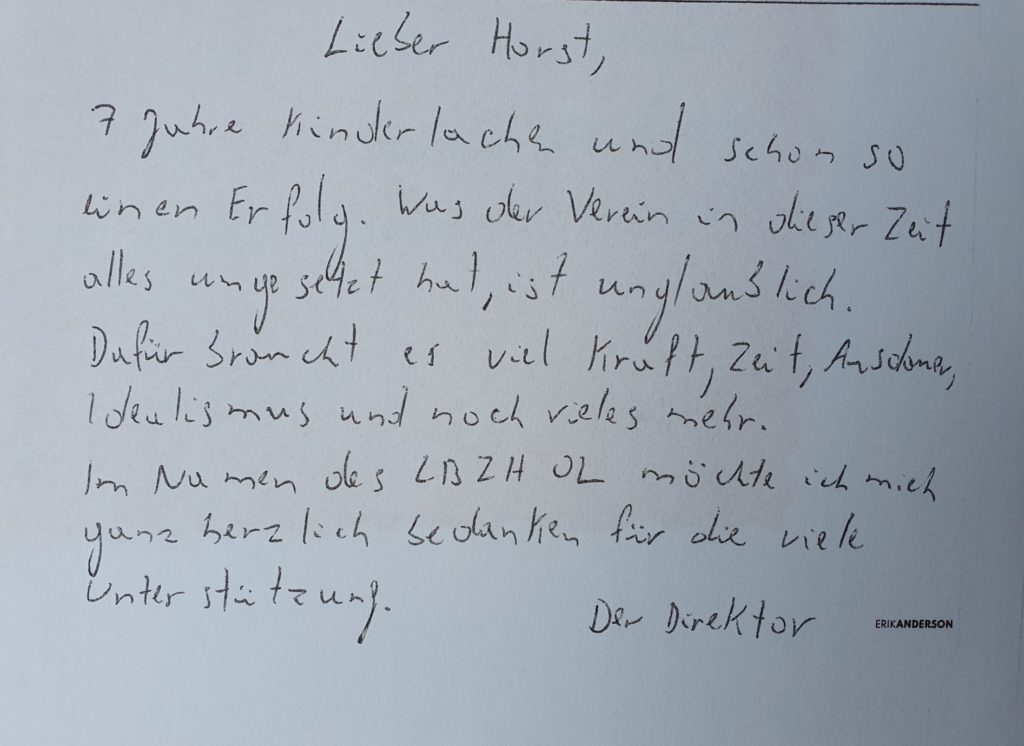 Lieber Horst,
7 Jahre Kinderlachen und schon so
einen Erfolg. Was der Verein in dieser Zeit
alles umgesetzt hat, ist unglaublich.
Dafür braucht es viel Kraft, Zeit, Ausdauer,
Idealismus und noch vieles mehr.
Im Namen des LBZH OL möchte ich mich
ganz herzlich bedanken für die viele
Unterstützung.
Der Direktor
ERIKANDERSON